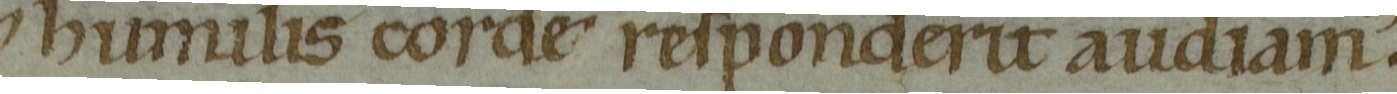 humilis corde responderit audiam.